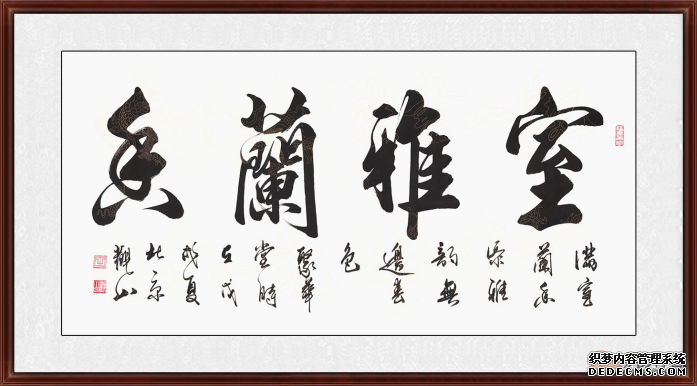 室雅蘭香
滿室
蘭香
添雅
韵無
邊春
色
聚華
堂時
在戊
戌夏
北京
觀山
织梦内容管理系统
DEDECMS.COM